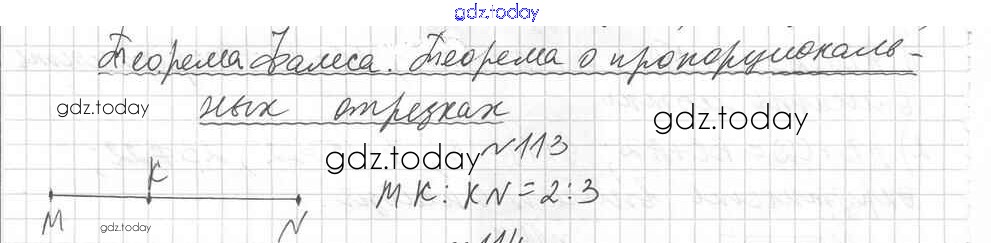 gdz.today
Теорема Фалеса. Теорема о пропорциональ-
ных отрезках
gdz.today
gdz.today
gdz.today
N113
MK : KN = 2 : 3
K
M
N
gdz.today